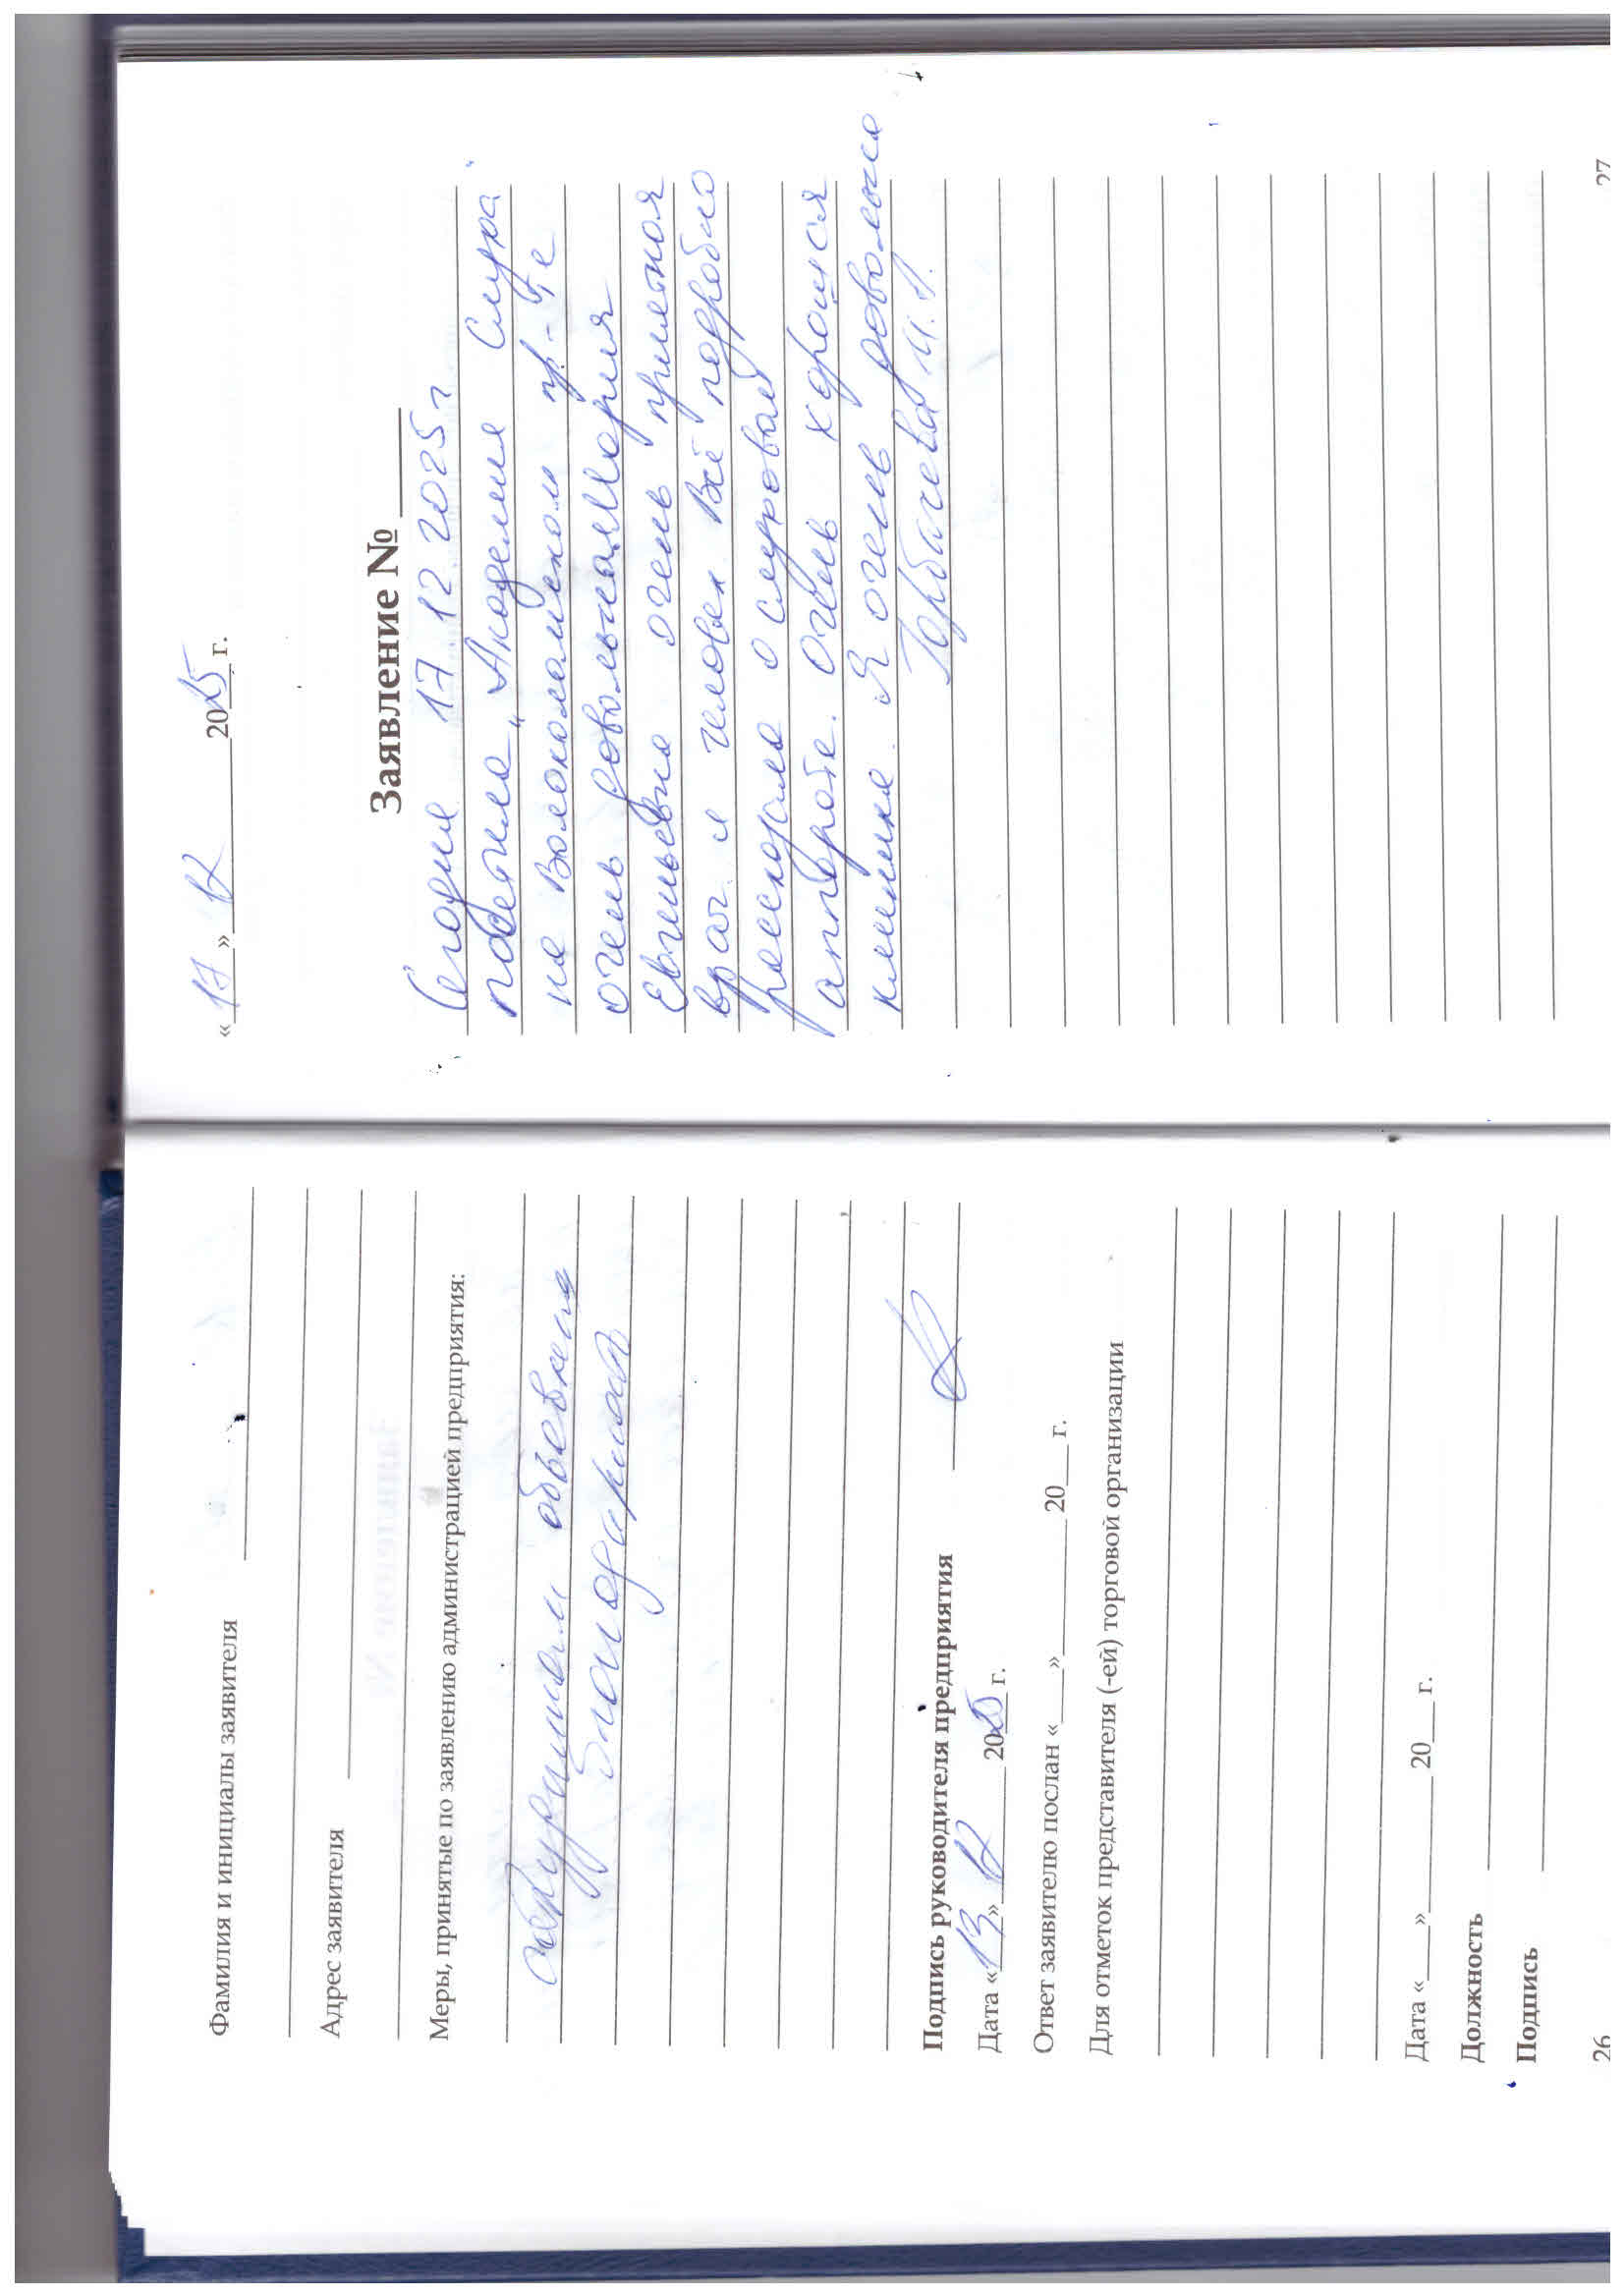 Фамилия и инициалы заявителя
Адрес заявителя
Меры, принятые по заявлению администрацией предприятия:
объявлена
благодарность
Подпись руководителя предприятия
Дата «13» 12 2025 г.
Ответ заявителю послан «___»________20___г.
Для отметок представителя (-ей) торговой организации
Дата «___»________20___г.
Должность
Подпись
26
«17» 12 2025 г.
Заявление №
Сегодня 17.12.2025 г
посетила „Академия Слуха"
на Волоколамском пр-те
очень довольная Мария
Евгеньевна очень приятная
врач и человек Всё подробно
расскозала о слуховом
аппарате. Очень хорошая
клиника Я очень довольна
Горбачева М.Л.
27